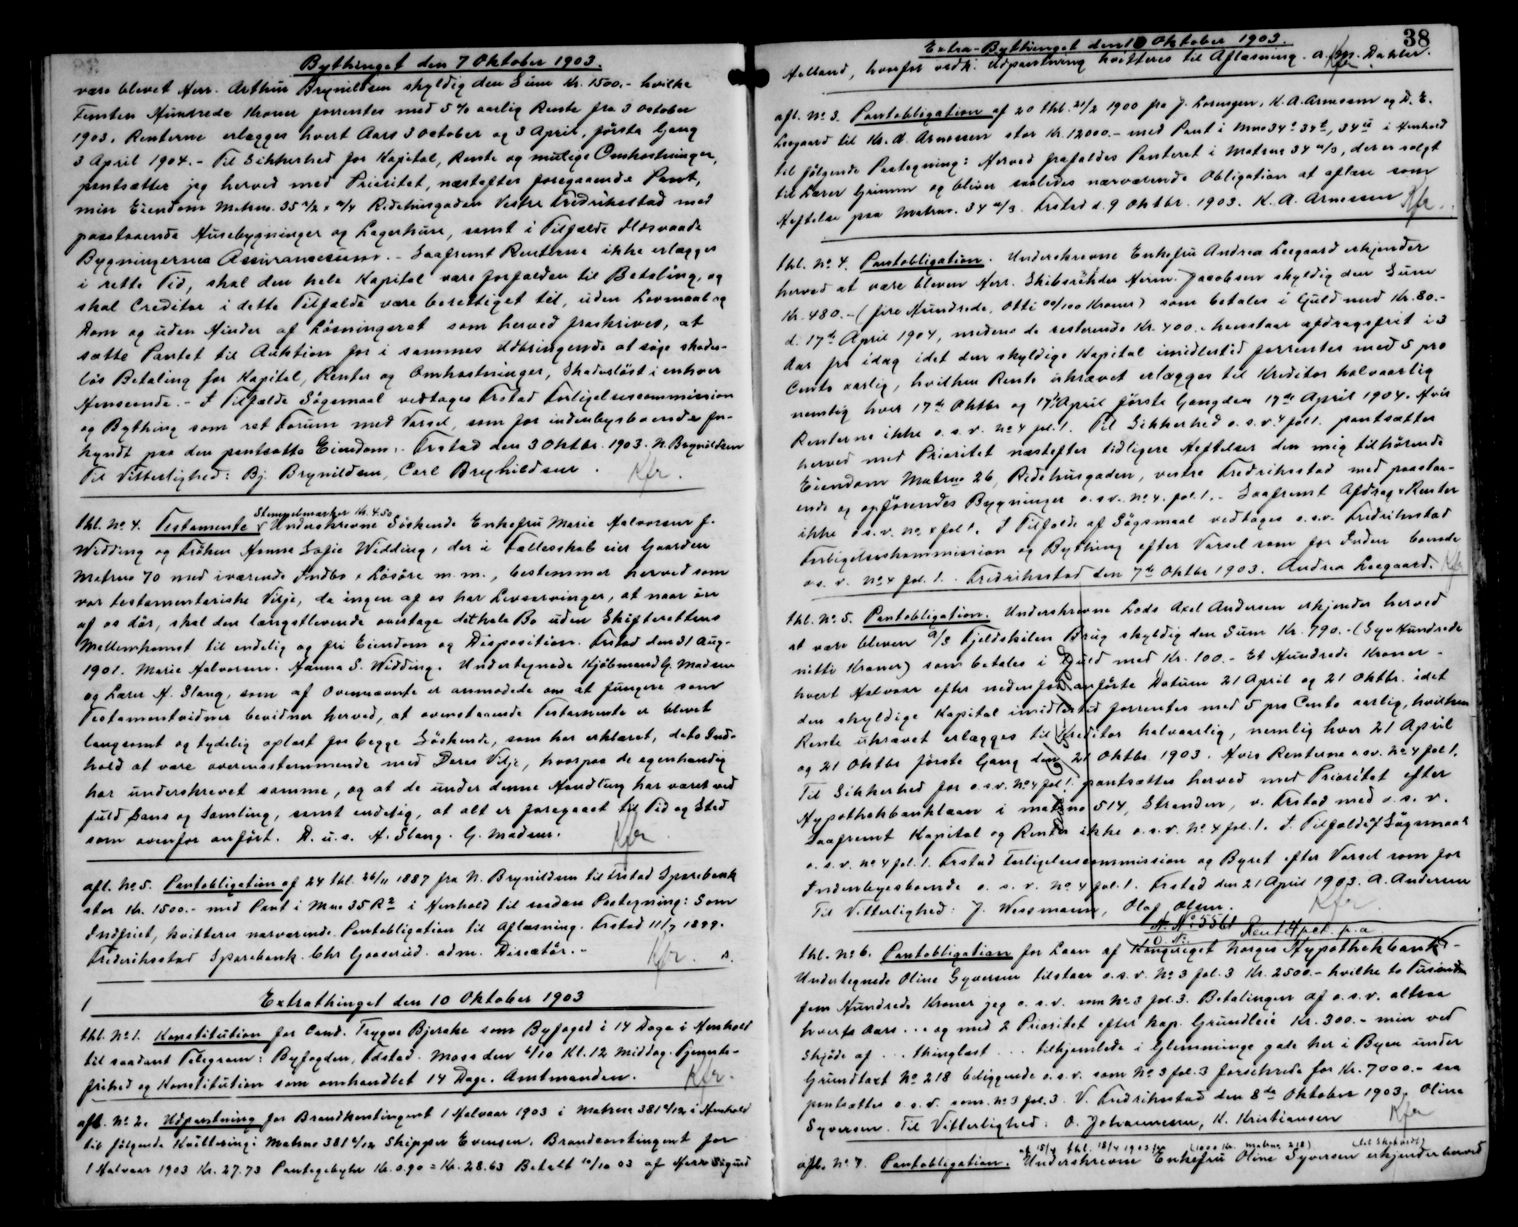 Bythinget den 7 Oktober 1903.
være blevet Herr. Arthur Brynildsen skyldig den Sum Kr. 1500.- hvilke
Femten Hundrede Kroner forrentes med 5 % aarlig Rente fra 3 October
1903. Renterne erlægges hvert Aars 3 October og 3 April, første Gang
3 April 1904. - Til Sikkerhed for Kapital, Rente og mulige Omkostninger,
pantsætter jeg herved med Prioritet, næstefter foregaaende Pant,
min Eiendom Matrno. 35 Ridehusgaden Vestre Fredriksstad med
paastaaende Husebygninger og Lagerhuse, samt i Tilfælde Ildsvaade
Bygningernes Assurancesum. - Saafremt Renterne ikke erlægges
i rette Tid, skal den hele Kapital være forfalden til Betaling, og
skal Creditor i dette Tilfælde være berettiget til, uden Lovmaal og
Dom og uden Hinder af Løsningsret som herved fraskrives, at
sætte Pantet til Auktion for i sammes Udbringende at søge skades-
løs Betaling for Kapital, Renter og Omkostninger, Skadesløst i enhver
Henseende. - I Tilfælde Søgsmaal vedtages Frstad Forligelsescommission
og Bything som ret Forum med Varsel, som for indenbysboende for-
kyndt paa den pantsatte Eiendom. Frstad den 3 Oktbr. 1903. N. Brynildsen
Til Vitterlighed: Bj. Brynildsen, Carl Brynhildsen. Kfr.
Stempelmærker Kr. 4.50
thl. No 4. Testamente. Underskrevne Søskende Enkefru Marie Halvorsen f.
Widding og Frøken Hanna Sofie Widding, der i Fællesskab eier Gaarden
Matrno 70 med iværende Indbo & Løsøre m.m., bestemmer herved som
vor testamentariske Vilje, da ingen af os har Livsarvinger, at naar en
af os dør, skal den længstlevende overtage det hele Bo uden Skifterettens
Mellemkomst til endelig og fri Eiendom og Disposition. Frstad den 31 Aug-
1901. Marie Halvorsen. Hanna S. Widding. Undertegnede Kjøbmand G. Madsen
og Lærer H. Stang, som af Ovennævnte er anmodede om at fungere som
Testamentvidner bevidner herved, at ovenstaaende Testamente er blevet
langsomt og tydelig oplæst for begge Søskende, som har erklæret, dets Ind-
hold at være overensstemmende med Deres Vilje, hvorpaa de egenhændig
har underskrevet samme, og at de under denne Handling har været ved
fuld Sans og Samling, samt endelig, at alt er foregaaet til Tid og Sted
som ovenfor anført. D.u.s. H. Stang. G. Madsen. Kfr
afl. No 5. Pantobligation af 24 thl. 26/11 1887 fra N. Brynildsen til Frstad Sparebank
stor Kr. 1500.- med Pant i Mno 35 i Henhold til saadan Paategning: Som
Indfriet, kvitteres nærværende Pantobligation til Aflæsning. Frstad 11/7 1899.
Fredriksstad Sparebank. Chr Gooserud. adm. Director. - Kfr.
Extrathinget den 10 Oktober 1903
thl. No 1. Konstitution for Cand. Trygve Bjercke som Byfoged i 14 Dage i Henhold
til saadant Telegram: Byfogden, Fdstad. Moss den 6/10 Kl. 12 Middag. Tjeneste-
frihed og Konstitution som omhandlet 14 Dage. Amtmanden. Kfr.
afl. No 2. Udpantning for Brandkontingent 1 Halvaar 1903 i Matrno 381 i Henhold
til følgende Kvittering: Matrno 381 Skipper Evensen. Brandcontingent for
1 Halvaar 1903 Kr. 27.73 Pantegebyhr Kr. 0.90 = Kr. 28.63 Betalt 10/10 03 af Herr Sigurd
38
Extra-Bythinget den 10 Oktober 1903.
Helland, hvorfor vedk. Udpantning kvitteres til Aflæsning. Dahler.
afl. No 3. Pantobligation af 20 thl. 21/2 1900 fra J. Lorensen, K. A. Arnesen og D. E.
Leegaard til Kr. A. Arnesen stor Kr. 12000.- med Pant i Mno 34 i Henhold
til følgende Paategning: Herved frafaldes Panteret i Matrno 34, der er solgt
til Lærer Grimm og bliver saaledes nærværende Obligation at aflæse som
Heftelse paa Matrno. 34. Frstad d. 9 Oktbr. 1903. K. A. Arnesen Kfr.
thl. No 4. Pantobligation. Underskrevne Enkefru Andrea Leegaard erkjender
herved at være bleven Herr. Skibsreder Herm. Jacobsen skyldig den Sum
Kr. 480.- (fire Hundrede, Otti 00/100 Kroner) som betales i Guld med Kr. 80.-
d. 17de April 1904, medens de resterende Kr. 400.- henstaar afdragsfrit i 3
Aar fra idag idet den skyldige Kapital imidlertid forrentes med 5 pro
Cento aarlig, hvilken Rente ukrævet erlægges til Kreditor halvaarlig
nemlig hver 17de Oktbr og 17de April første Gang den 17de April 1904. Hvis
Renterne ikke o.s.v. No 4 fol. 1. Til Sikkerhed o.s.v. 4 fol 1. pantsættes
herved med Prioritet næstefter tidligere Heftelser den mig tilhørende
Eiendom Matrno 26, Ridehusgaden, vestre Fredriksstad med paastaa-
ende og opførendes Bygninger o.s.v. No 4. fol. 1. - Saafremt Afdrag & Renter
ikke o.s.v. No 4 fol 1. I Tilfælde af Søgsmaal vedtages o.s.v. Fredriksstad
Forligelseskommission og Bything efter Varsel som for Inden boende
o.s.v. No 4 fol. 1. Fredriksstad den 7de Oktbr 1903. Andrea Leegaard. Kfr
thl. No. 5. Pantobligation. Underskrevne Lods Axel Andersen erkjender herved
at være bleven A/S Fjeldskilen Brug skyldig den Sum Kr. 790.- (Syv Hundrede
nitti Kroner) som betales i Guld med Kr. 100.- Et Hundrede Kroner -
hvert Halvaar efter nedenfor anførte Datum 21 April og 21 Oktbr. idet
den skyldige Kapital imidlertid forrentes med 5 pro Cento aarlig, hvilken
Rente ukrævet erlægges til Kreditor halvaarlig, nemlig hver 21 April
og 21 Oktbr første Gang den 21 Oktbr. 1903. Hvis Renterne o.s.v. No 4 fol 1.
Til Sikkerhed for o.s.v. No 4 fol. 1. pantsættes herved med Prioritet efter
Hypothekbanklaan i matrno 514, Stranden, v. Frstad med o.s.v.
Saafremt Kapital og Renter ikke o.s.v. No 4 fol. 1. I Tilfælde af Søgsmaal
o.s.v. No 4 fol. 1. Frstad Forligelsescommission og Byret efter Varsel som for
Indenbyesboende o.s.v. No 4 fol. 1. Frstad den 21 April 1903. A. Andersen
Til Vitterlighed: J. Wessmann, Olaf Olsen. Kfr.
thl. No 6. Pantobligation for Laan af Kongeriget Norges Hypothekbank -
Undertegnede Oline Syversen tilstaar o.s.v. No 3 fol. 3 Kr. 2500.- hvilke to Tusinde
fem Hundrede Kroner jeg o.s.v. som No 3 fol. 3. Betalingen af o.s.v. altsaa
hverts Aars ... og med 2 Prioritet efter kap. Grundleie Kr. 300.- min ved
Skjøde af ... thinglæst ... tilhjemlede i Glemminge gade her i Byen under
Grundtaxt No 218 beliggende o.s.v. som No 3 fol. 3 forsikrede for Kr. 7000.- saa
pantsættes o.s.v. som. No 3 fol. 3. V. Fredriksstad den 8de Oktober 1903. Oline
Syversen. Til Vitterlighed: O. Johannesen, K. Kristiansen Kfr
af 15/4 thl. 18/4 1903 (1000 Kr. matrno 218)
afl. No 7. Pantobligation. Underskrevne Enkefru Oline Syversen erkjender herved